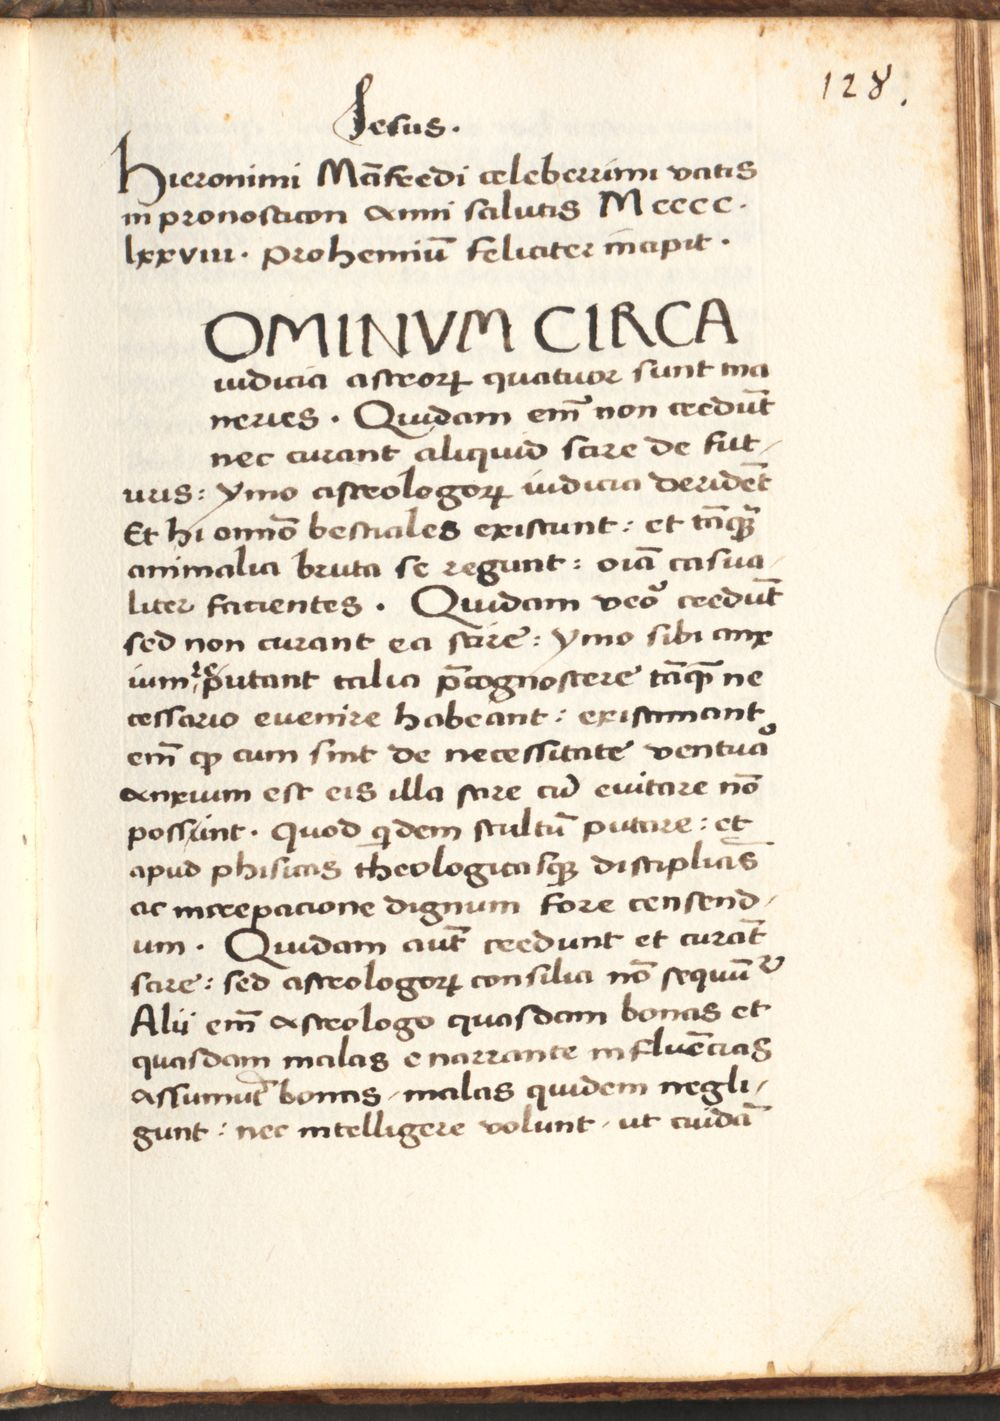 128.
Jesus.
Hieronimi Mãfredi celeberrimi vatis
in pronosticon anni salutis M cccc.
lxxviii. prohemiũ feliciter incipit.
OMINVM CIRCA
iudicia astrorꝝ quatuor sunt ma
neries. Quidam em̃ non credũt
nec curant aliquid scire de fut-
uris: ymo astrologorꝝ iudicia deridẽt
Et hi omnõ bestiales existunt: et tãꝙ̃
animalia bruta se regunt: oĩa casua-
liter facientes. Quidam vero credũt
sed non curant ea scire: ymo sibi anx
ium putant talia p̃cognoscere tãꝙ̃ ne
cessario evenire habeant: existimant
em̃ ꝙ cum sint de necessitate ventura
anxium est eis illa scire cũ evitare nõ
possint. Quod qͥdem stultũ putare: et
apud phisicas theologicasqꝫ disciplĩas
ac increpacione dignum fore censend-
um. Quidam aut̃ credunt et curãt
scire: sed astrologorꝝ consilia nõ sequũᷣ
Alii em̃ astrologo quasdam bonas et
quasdam malas enarrante influẽcias
assumũt bonas, malas quidem negli-
gunt: nec intelligere volunt, ut cuidã